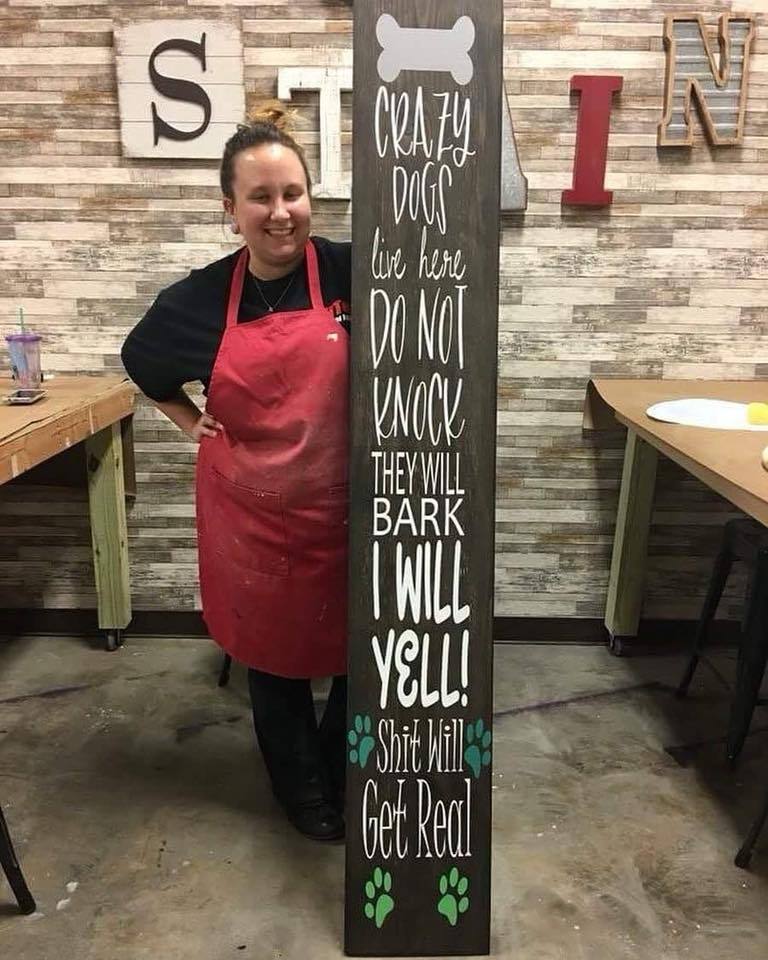 STAIN
CRAZY
DOGS
live here
DO NOT
KNOCK
THEY WILL
BARK
I WILL
YELL!
Shit Will
Get Real